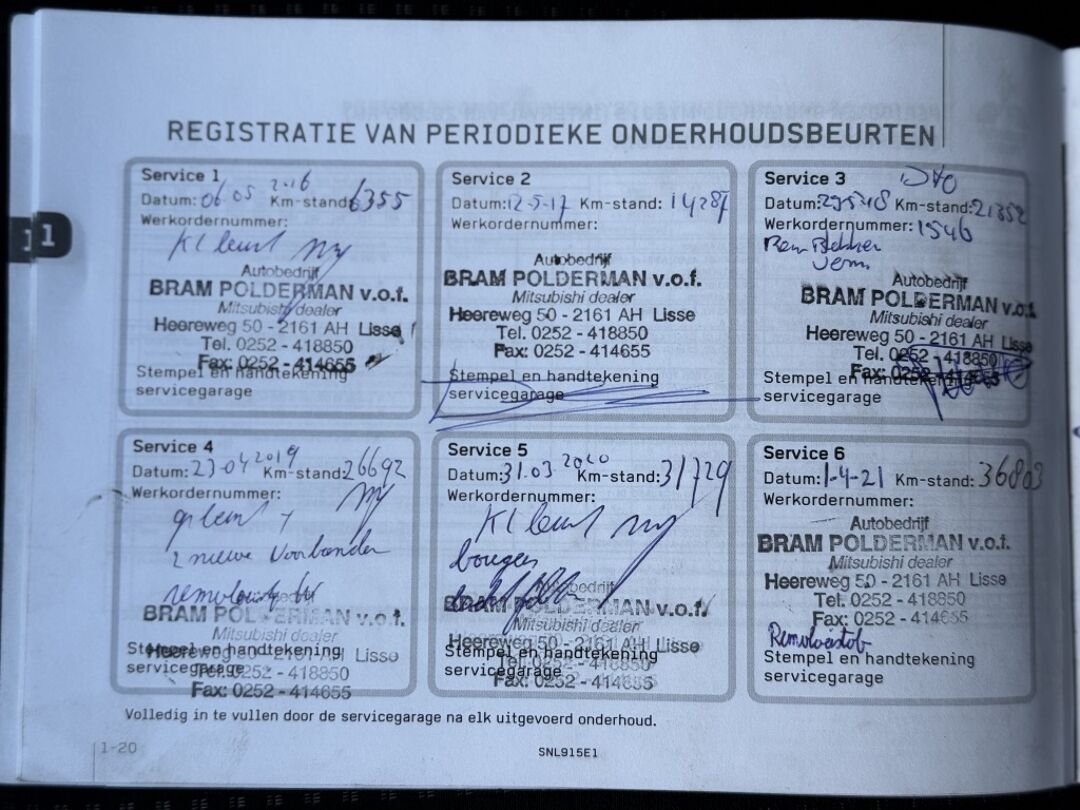 REGISTRATIE VAN PERIODIEKE ONDERHOUDSBEURTEN
1
Service 1
Datum: 06.05 2016 Km-stand: 6355
Werkordernummer:
Kl beurt
Autobedrijf
BRAM POLDERMAN v.o.f.
Mitsubishi dealer
Heereweg 50 - 2161 AH Lisse
Tel. 0252 - 418850
Fax: 0252 - 414655
Stempel en handtekening
servicegarage
Service 2
Datum: 12-5-17 Km-stand: 14287
Werkordernummer:
Autobedrijf
BRAM POLDERMAN v.o.f.
Mitsubishi dealer
Heereweg 50 - 2161 AH Lisse
Tel. 0252 - 418850
Fax: 0252 - 414655
Stempel en handtekening
servicegarage
Service 3
Datum: Km-stand: 21352
Werkordernummer: 1546
Autobedrijf
BRAM POLDERMAN v.o.f.
Mitsubishi dealer
Heereweg 50 - 2161 AH Lisse
Tel. 0252 - 418850
Fax: 0252 - 414655
Stempel en handtekening
servicegarage
Service 4
Datum: 23-04 2019 Km-stand: 26692
Werkordernummer:
gr beurt +
2 nieuwe voorbanden
remvloeistof
BRAM POLDERMAN v.o.f.
Mitsubishi dealer
Heereweg 50 - 2161 AH Lisse
Stempel en handtekening
servicegarage
Tel. 0252 - 418850
Fax: 0252 - 414655
Service 5
Datum: 31.03 2020 Km-stand: 31729
Werkordernummer:
Kl beurt
bougies
Autobedrijf
BRAM POLDERMAN v.o.f.
Mitsubishi dealer
Heereweg 50 - 2161 AH Lisse
Stempel en handtekening
Tel. 0252 - 418850
servicegarage
Fax: 0252 - 414655
Service 6
Datum: 1-4-21 Km-stand: 36803
Werkordernummer:
Autobedrijf
BRAM POLDERMAN v.o.f.
Mitsubishi dealer
Heereweg 50 - 2161 AH Lisse
Tel. 0252 - 418850
Fax: 0252 - 414655
Remvloeistof
Stempel en handtekening
servicegarage
Volledig in te vullen door de servicegarage na elk uitgevoerd onderhoud.
1-20
SNL915E1